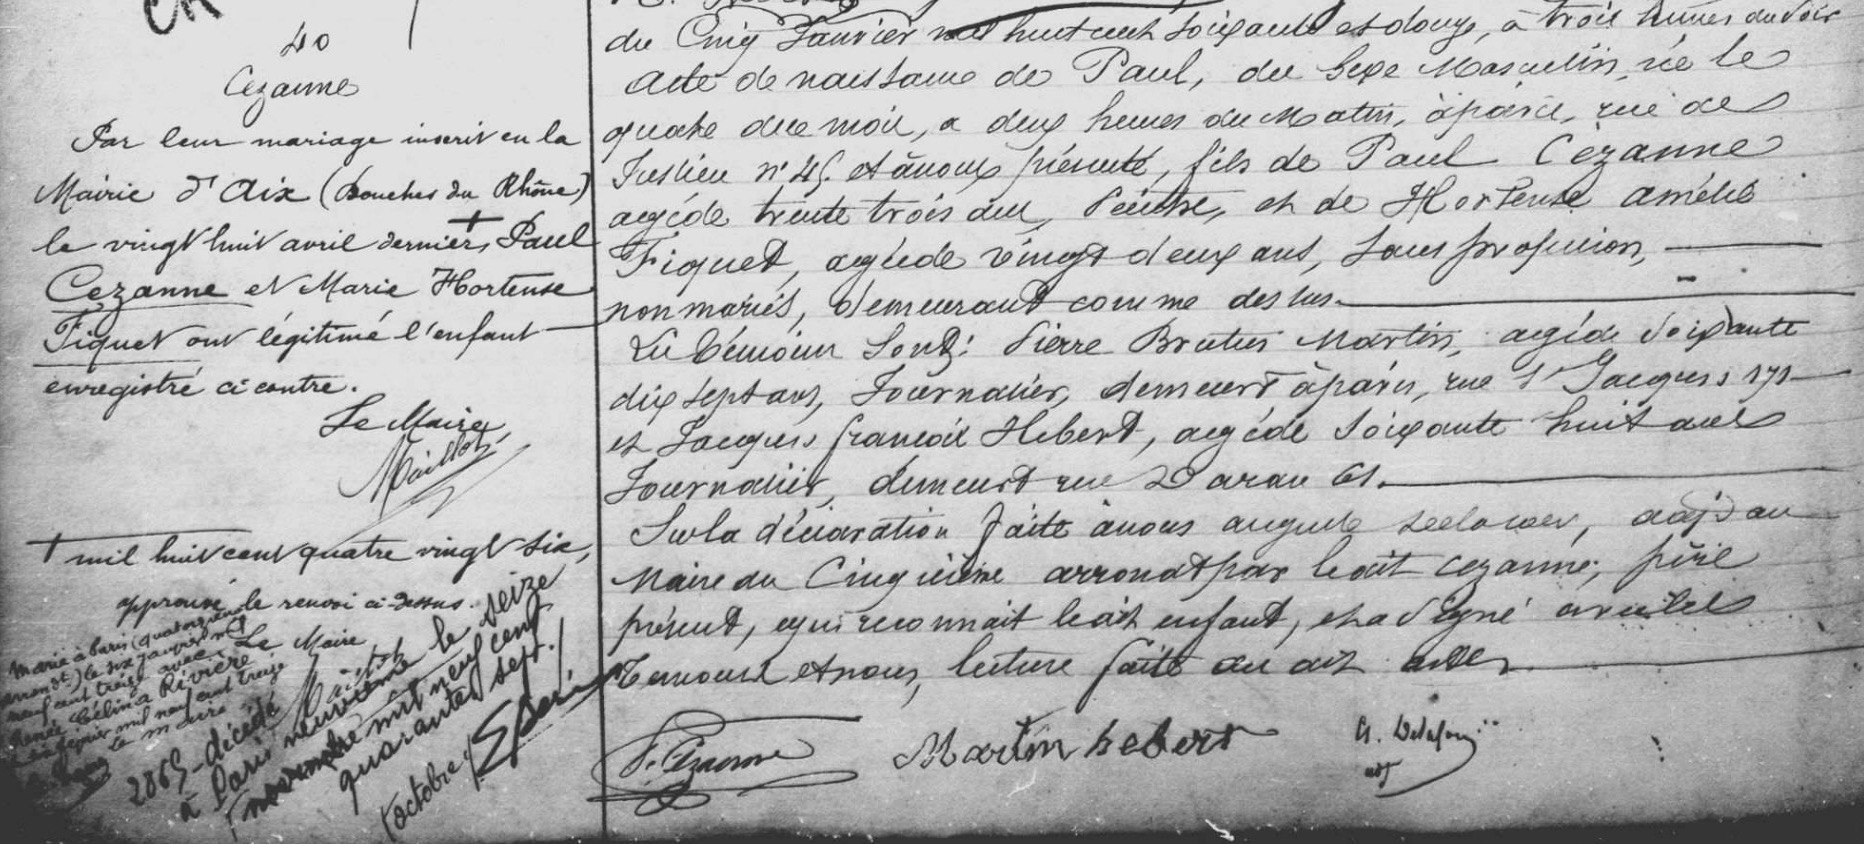 40
Cezanne
Par leur mariage inscrit en la
Mairie d'Aix (Bouches du Rhône)
le vingt huit avril dernier, + Paul
Cezanne et Marie Hortense
Fiquet ont légitimé l'enfant
enregistré ci contre.
Le Maire,
+ mil huit cent quatre vingt six,
approuvé le renvoi ci-dessus.
Le Maire
Marié à Paris (quatorzième
arrondt) le six janvier mil
neuf cent treize avec
Renée Célina Rivière
février mil neuf cent treize
le maire
2865 - décédé
à Paris neuvième le seize
(novembre mil neuf cent
quarante sept./.
(octobre)
du Cinq Janvier mil huit cent soixante et douze, à trois heures du soir
Acte de naissance de Paul, du Sexe Masculin, né le
quatre du mois, a deux heures du Matin, à paris, rue de
Jussieu n° 45 et à nous présenté, fils de Paul Cézanne
agé de trente trois ans, Peintre, et de Hortense Amélie
Fiquet, agée de vingt deux ans, sans profession,
non mariés, demeurant comme dessus.
Les témoins sont: Pierre Brutus Martin, agé de Soixante
dix sept ans, Journalier, demeurt à paris, rue St Jacques 171
et Jacques françois Hebert, agé de soixante huit ans
Journalier, demeurt rue 61.
Sur la déclaration faite à nous auguste, adjt au
Maire du Cinquième arrondt par le dit Cezanne, père
présent, qui reconnait le dit enfant, et a signé avec les
Temoins et nous, lecture faite du dit acte
P. Cézanne
Martin hebert
adj